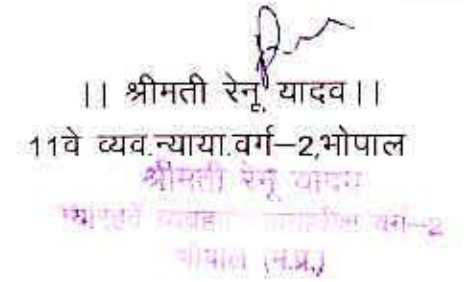 || श्रीमती रेनू यादव||
11वे व्यव.न्याया.वर्ग–2,भोपाल
श्रीमती रेनू यादव
ग्यारहवें व्यवहार वर्ग–2
भोपाल (म.प्र.)